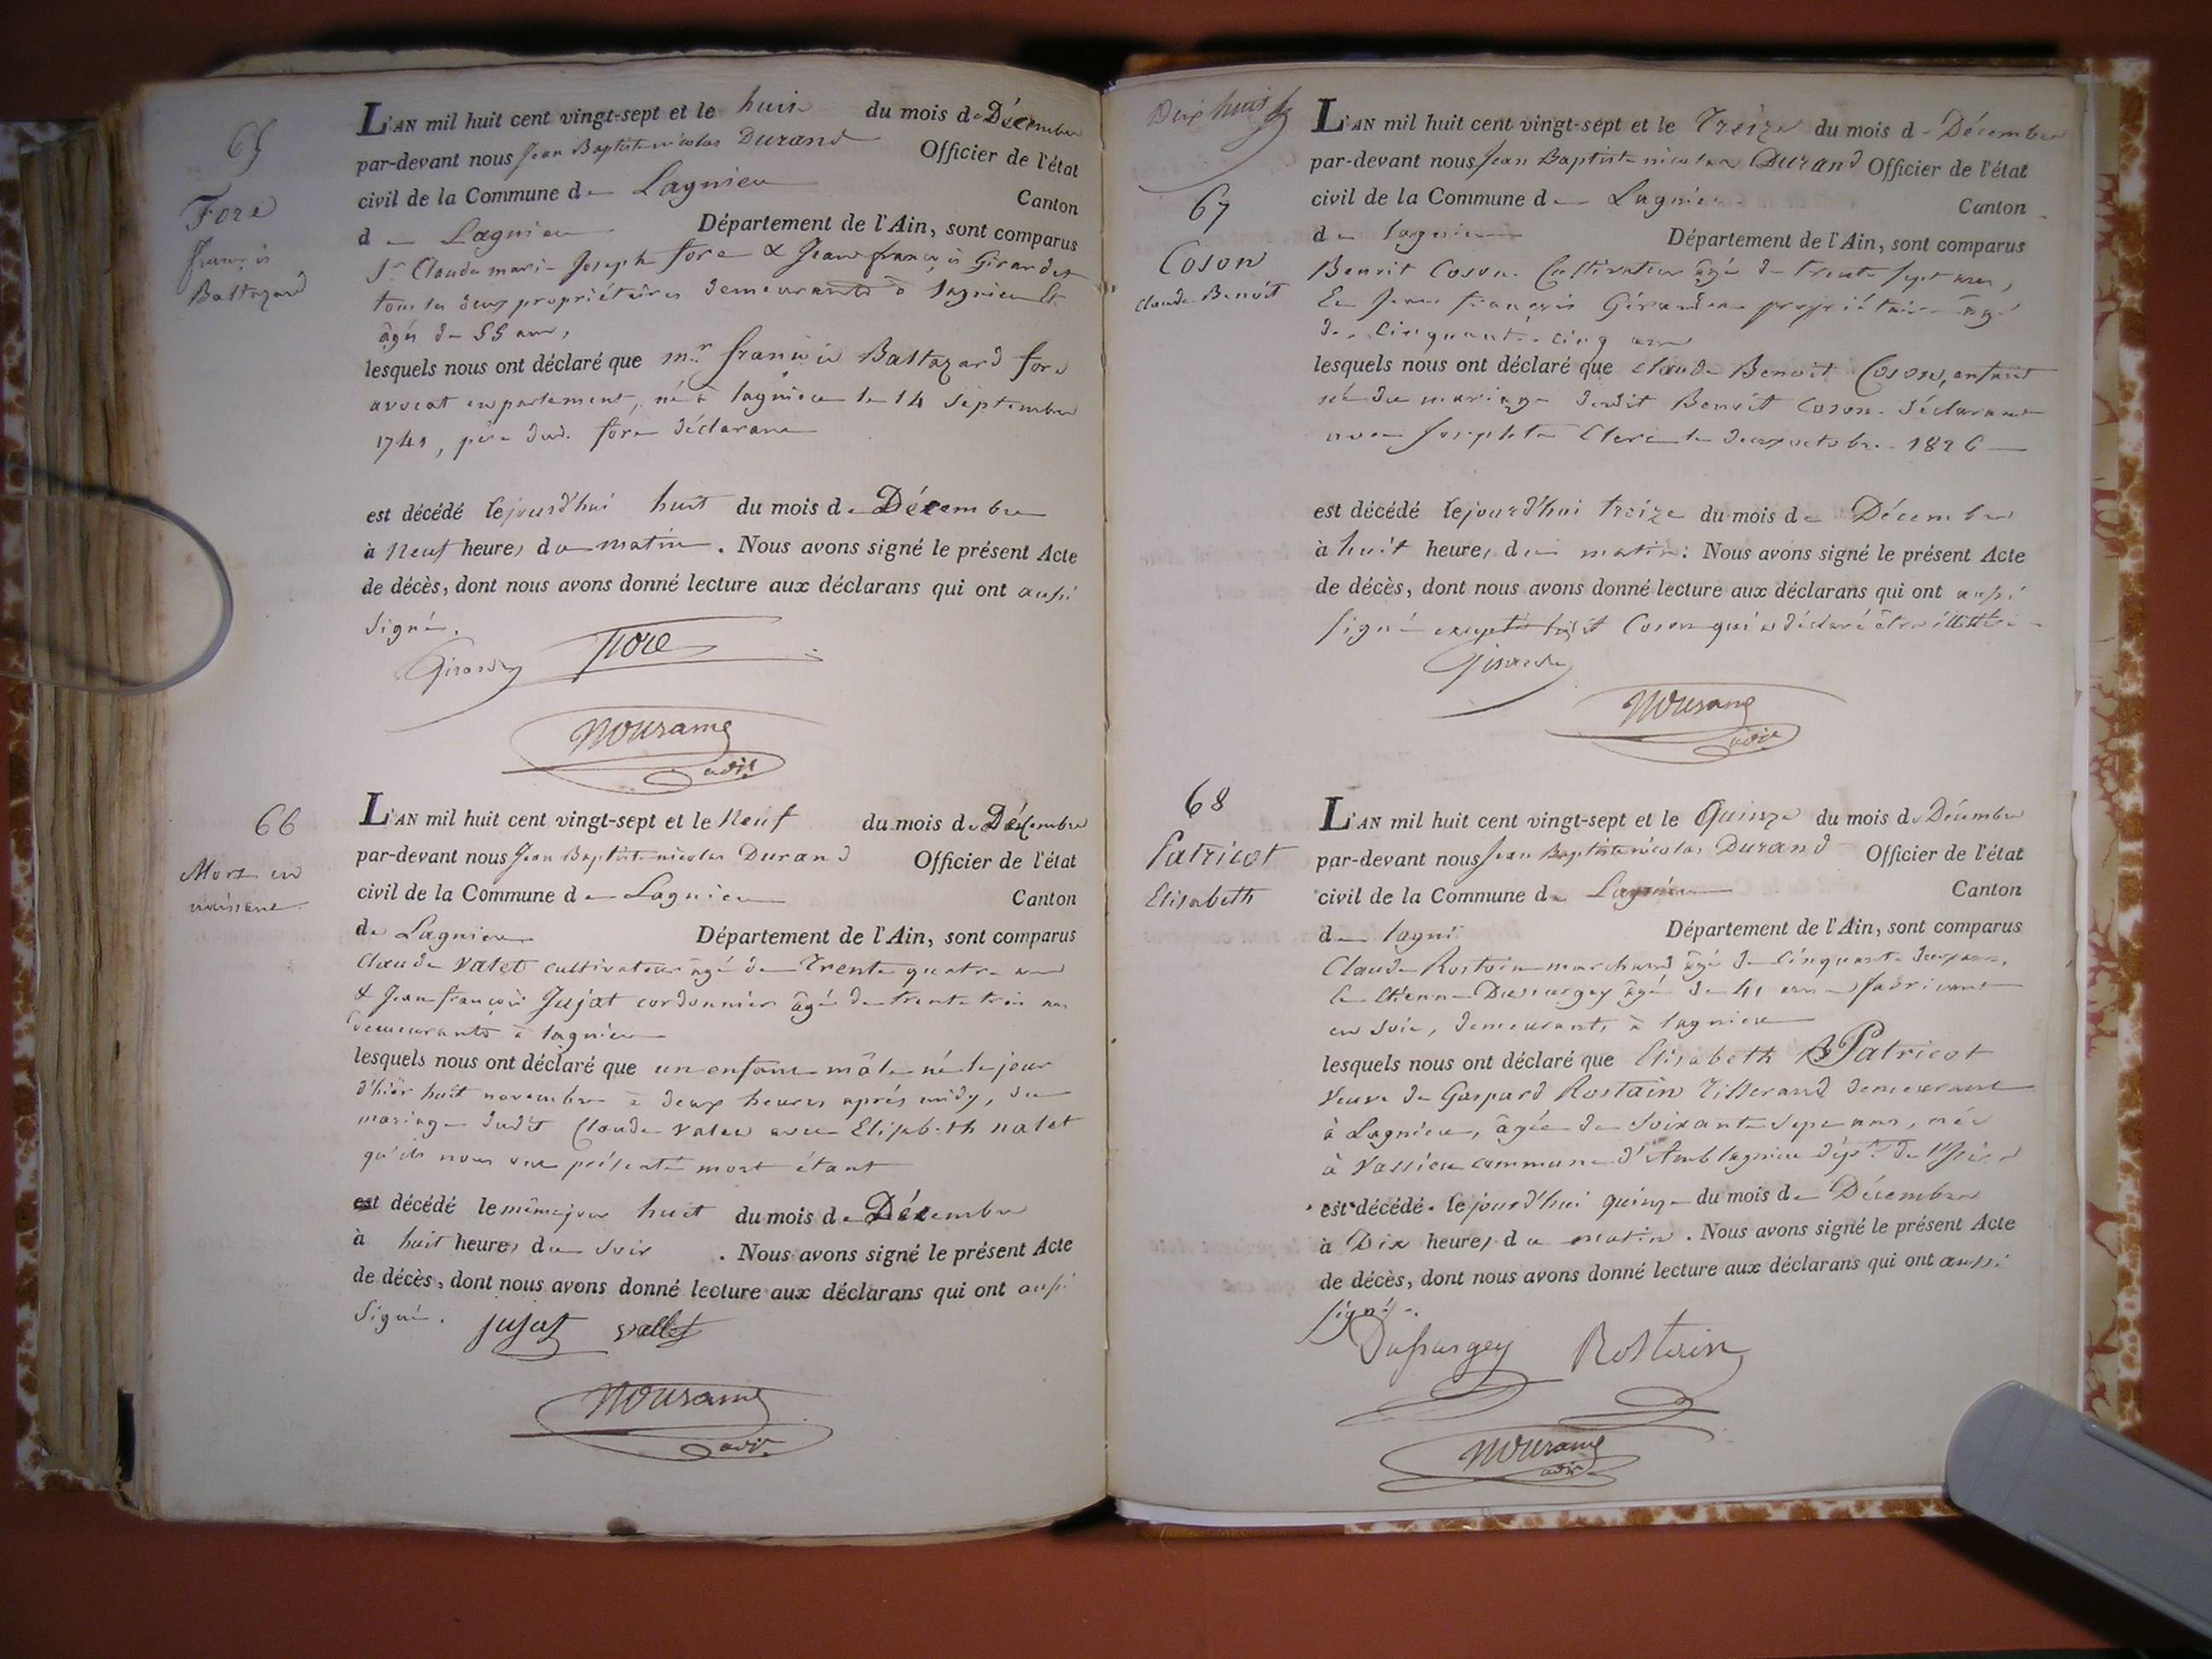 65
Fore
françois
Baltazard
L'AN mil huit cent vingt-sept et le huit du mois de Décembre
par-devant nous Jean Baptiste nicolas Durand Officier de l'état
civil de la Commune de Lagnieu Canton
de Lagnieu Département de l'Ain, sont comparus
Sr Claude marie Joseph fore & Jean françois Girardet
tous les deux propriétaires demeurants à lagnieu &
âgés de 55 ans,
lesquels nous ont déclaré que mr françois Baltazard fore
avocat en parlement, né à lagnieu le 14 Septembre
père dud. fore déclarant
est décédé lejourd'hui huit du mois de Décembre
à Neuf heures du matin. Nous avons signé le présent Acte
de décès, dont nous avons donné lecture aux déclarans qui ont aussi
signé.
Fore
66
Mort en
naissant
L'AN mil huit cent vingt-sept et le Neuf du mois de Décembre
par-devant nous Jean Baptiste nicolas Durand Officier de l'état
civil de la Commune de Lagnieu Canton
de Lagnieu Département de l'Ain, sont comparus
Claude Valet cultivateur âgé de Trente quatre ans
& Jean françois Jujat cordonnier âgé de trente trois ans
demeurants à lagnieu
lesquels nous ont déclaré que un enfant mâle né le jour
d'hier huit novembre à deux heures après midy, du
mariage dudit Claude Valet avec Elisabeth
qu'ils nous ont présenté mort étant
est décédé le même jour huit du mois de Décembre
à huit heures du soir. Nous avons signé le présent Acte
de décès, dont nous avons donné lecture aux déclarans qui ont aussi
signé.
jujat vallet
Dix huit
67
Coson
Claude Benoit
L'AN mil huit cent vingt-sept et le Treize du mois de Décembre
par-devant nous Jean Baptiste nicolas Durand Officier de l'état
civil de la Commune de Lagnieu Canton
de lagnieu Département de l'Ain, sont comparus
Benoit Coson Cultivateur âgé de trente sept ans,
Et Jean françois Girardet propriétaire âgé
de cinquante-cinq ans
lesquels nous ont déclaré que claude Benoit Coson, enfant
né du mariage dudit Benoit Coson déclarant
avec Josephte Clerc le deux octobre 1826
est décédé lejourd'hui treize du mois de Décembre
à huit heures du matin. Nous avons signé le présent Acte
de décès, dont nous avons donné lecture aux déclarans qui ont aussi
signé excepté ledit Coson qui a déclaré être illittéré
68
Patricot
Elisabeth
L'AN mil huit cent vingt-sept et le Quinze du mois de Décembre
par-devant nous Jean Baptiste nicolas Durand Officier de l'état
civil de la Commune de Lagnieu Canton
de lagni Département de l'Ain, sont comparus
Claude Rostain marchand âgé de cinquante deux ans,
Etienne âgé de 41 ans fabricant
en soie, demeurants à lagnieu
lesquels nous ont déclaré que Elisabeth Patricot
Veuve de Gaspard Rostain Tisserand demeurant
à Lagnieu, âgée de soixante sept ans, née
à Vassieu commune d'Amblagnieu dépt. de l'Isère
est décédé lejourd'hui quinze du mois de Décembre
à Dix heures du matin. Nous avons signé le présent Acte
de décès, dont nous avons donné lecture aux déclarans qui ont aussi
signé.
Rostain